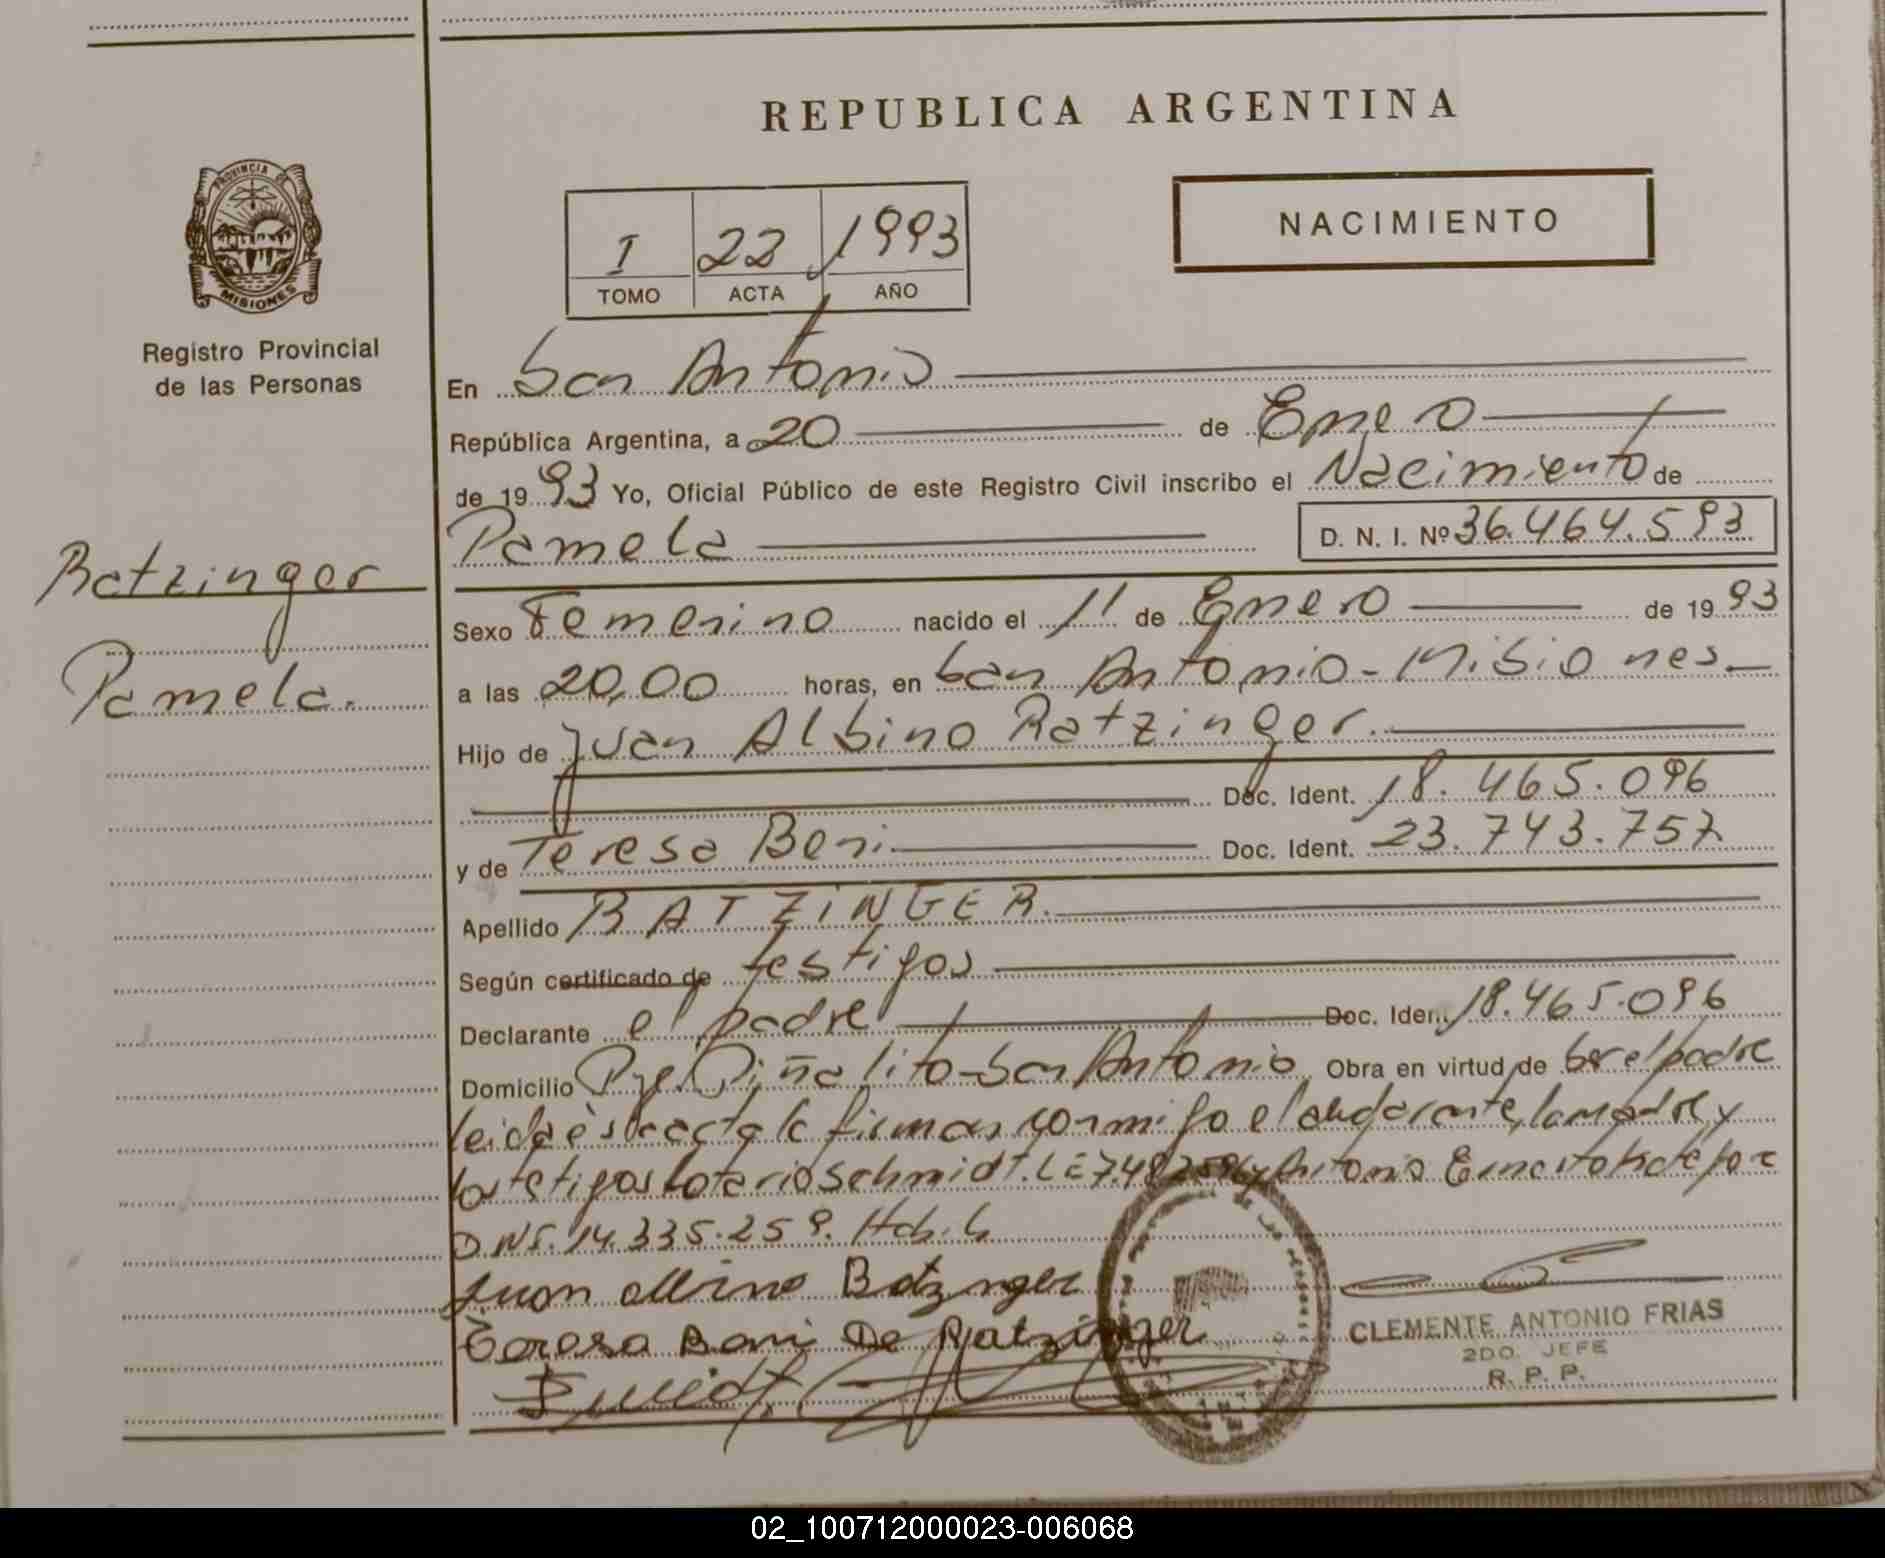 REPUBLICA ARGENTINA
PROVINCIA DE
MISIONES
Registro Provincial
de las Personas
I 22 1993
TOMO ACTA AÑO
NACIMIENTO
En San Antonio
República Argentina, a 20 de Enero
de 1993 Yo, Oficial Público de este Registro Civil inscribo el Nacimiento de
Pamela D. N. I. Nº 36.464.593
Ratzinger
Pamela.
Sexo Femenino nacido el 11 de Enero de 1993
a las 20,00 horas, en San Antonio - Misiones.
Hijo de Juan Albino Ratzinger.
Doc. Ident. 18.465.096
y de Teresa Beni. Doc. Ident. 23.743.757
Apellido RATZINGER.
Según certificado de testigos
Declarante el padre Doc. Iden. 18.465.096
Domicilio Pje Piñalito - San Antonio Obra en virtud de ser el padre
leida ésta acta la firman conmigo el declarante, la madre y
los testigos Loterio Schmidt. L.E. y Antonio Ernesto
D.N.I. 14.335.259.
Juan Albino Ratzinger
Teresa Beni De Ratzinger
CLEMENTE ANTONIO FRIAS
2DO. JEFE
R. P. P.
02_100712000023-006068